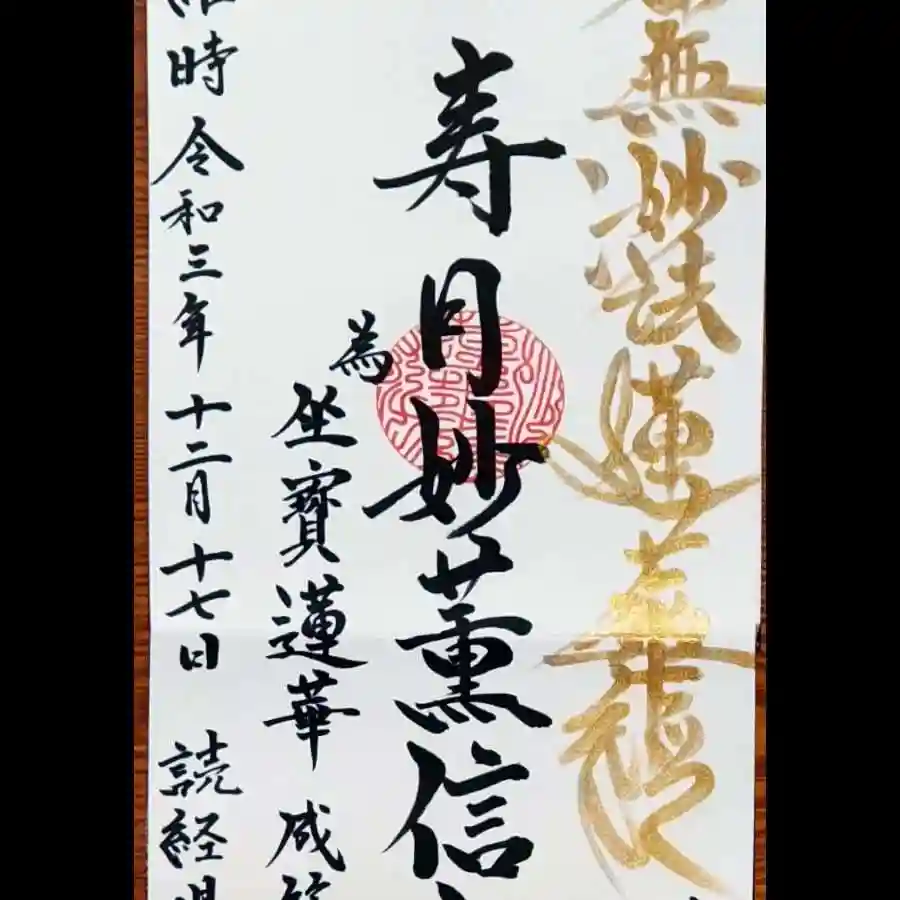 無妙法蓮華経
寿月妙薫信
為坐寳蓮華 成
時 令和三年 十二月 十七日 読経